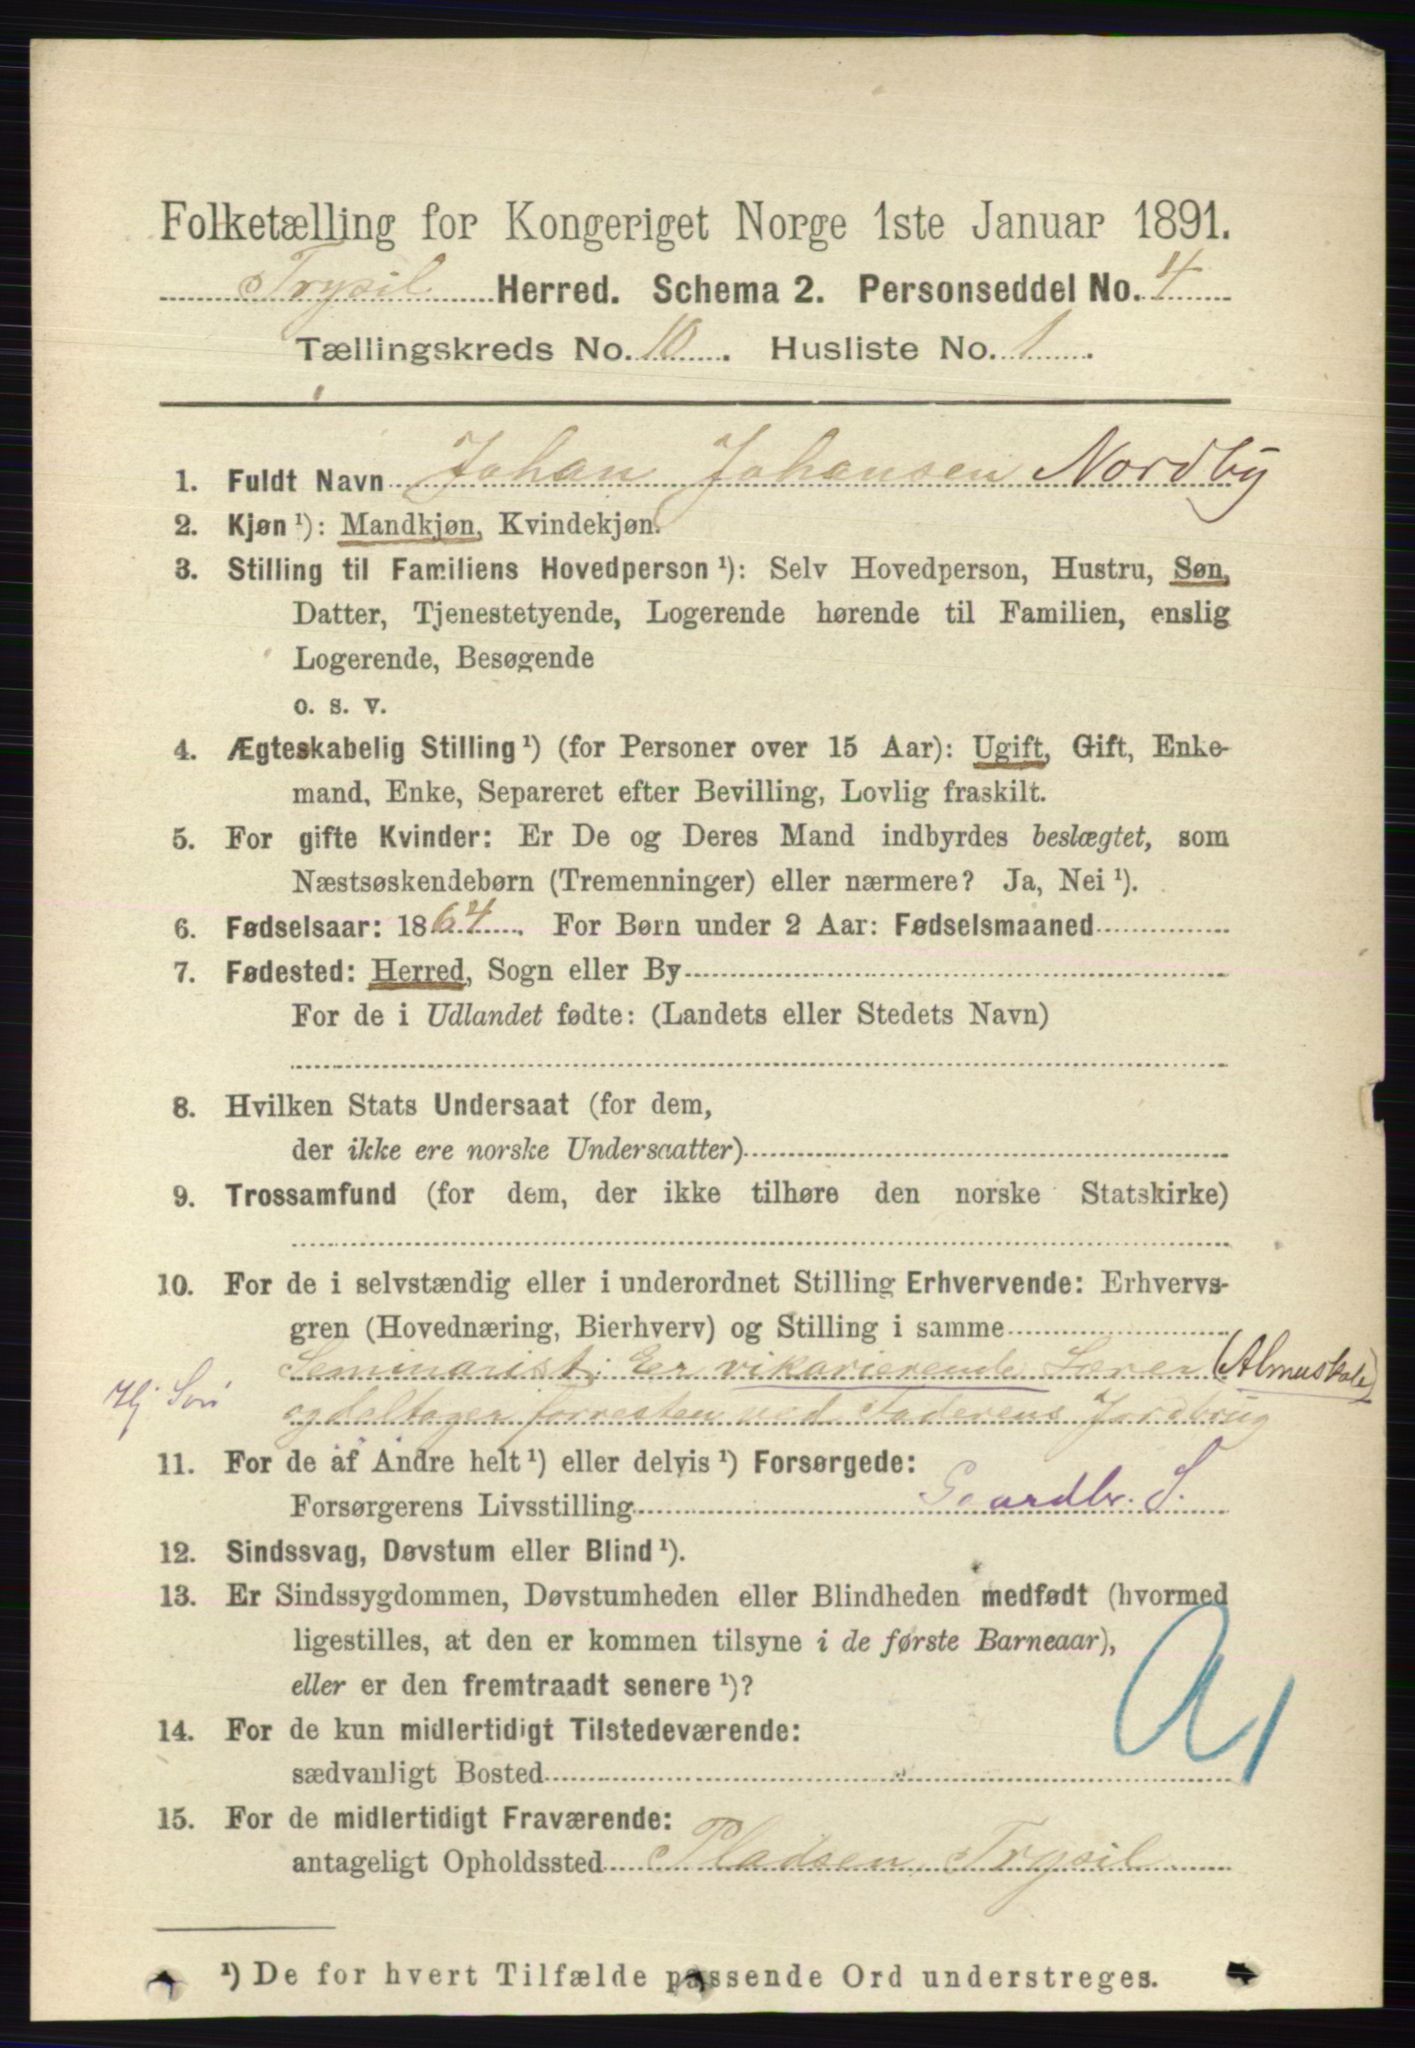 Folketælling for Kongeriget Norge 1ste Januar 1891.
Trysil Herred. Schema 2. Personseddel No. 4
Tællingskreds No. 10. Husliste No. 1.
1. Fuldt Navn Johan Johansen Nordby
2. Kjøn ¹): Mandkjøn, Kvindekjøn.
3. Stilling til Familiens Hovedperson ¹): Selv Hovedperson, Hustru, Søn,
Datter, Tjenestetyende, Logerende hørende til Familien, enslig
Logerende, Besøgende
o. s. v.
4. Ægteskabelig Stilling ¹) (for Personer over 15 Aar): Ugift, Gift, Enke-
mand, Enke, Separeret efter Bevilling, Lovlig fraskilt.
5. For gifte Kvinder: Er De og Deres Mand indbyrdes beslægtet, som
Næstsøskendebørn (Tremenninger) eller nærmere? Ja, Nei ¹).
6. Fødselsaar: 1864. For Børn under 2 Aar: Fødselsmaaned
7. Fødested: Herred, Sogn eller By
For de i Udlandet fødte: (Landets eller Stedets Navn)
8. Hvilken Stats Undersaat (for dem,
der ikke ere norske Undersaatter)
9. Trossamfund (for dem, der ikke tilhøre den norske Statskirke)
10. For de i selvstændig eller i underordnet Stilling Erhvervende: Erhvervs-
gren (Hovednæring, Bierhverv) og Stilling i samme
Seminarist: Er vikarierende Lærer (Almuskole)
Hj Søn
og deltager forresten ved Faderens Jordbrug
11. For de af Andre helt ¹) eller delvis ¹) Forsørgede:
Forsørgerens Livsstilling Gaardbr. S.
12. Sindssvag, Døvstum eller Blind ¹).
13. Er Sindssygdommen, Døvstumheden eller Blindheden medfødt (hvormed
ligestilles, at den er kommen tilsyne i de første Barneaar),
eller er den fremtraadt senere ¹)?
14. For de kun midlertidigt Tilstedeværende:
sædvanligt Bosted
15. For de midlertidigt Fraværende:
antageligt Opholdssted Pladsen, Trysil
¹) De for hvert Tilfælde passende Ord understreges.